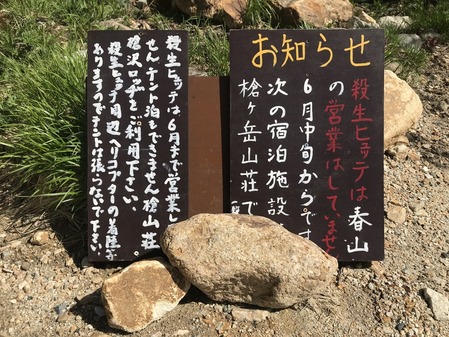 お知らせ
殺生ヒュッテは春山
の営業はしていません
6月中旬からです
次の宿泊施設
槍ヶ岳山荘で
殺生ヒュッテは6月まで営業し
せん.テント泊もできません槍山荘
槍沢ロッヂをご利用下さい、
殺生ヒュッテ周辺ヘリコプターの着陸等
ありますのでテントは張らないで下さい。